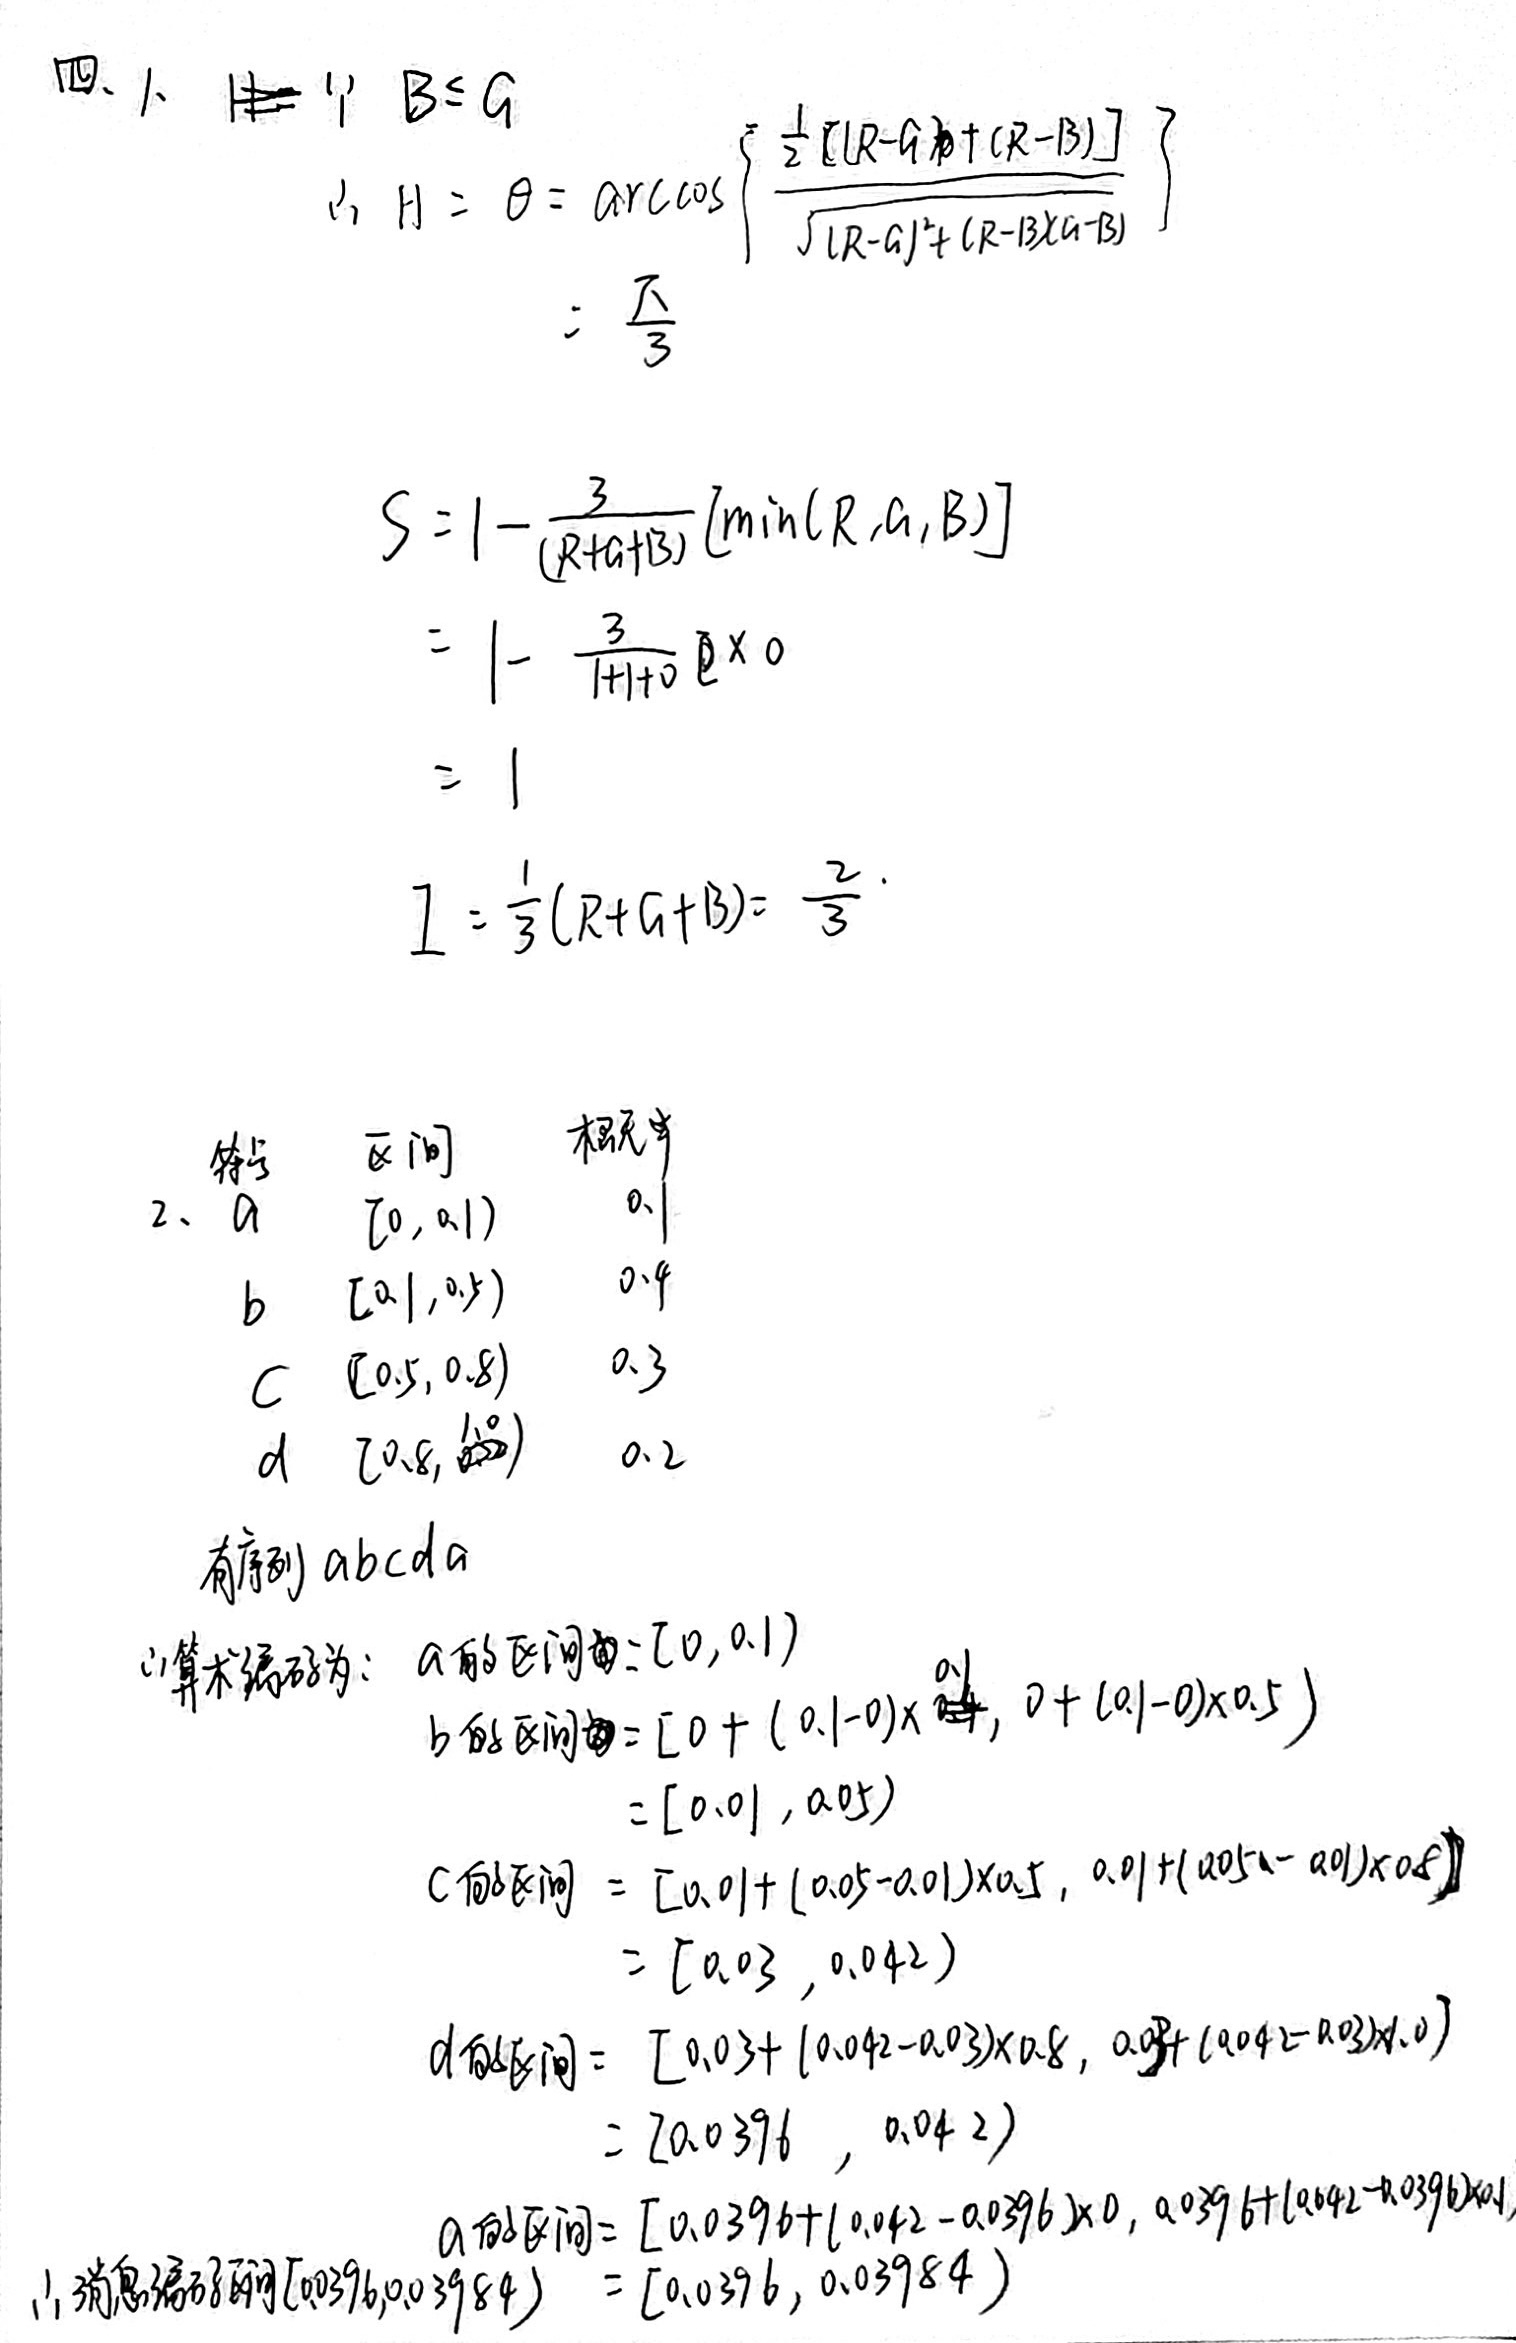 四、1、 ∵ B≤G
∴ H = θ = arccos{ \frac{\frac{1}{2}[(R-G)+(R-B)]}{\sqrt{(R-G)²+(R-B)(G-B)}} }
= \frac{π}{3}
S = 1 - \frac{3}{(R+G+B)} [min(R,G,B)]
= 1 - \frac{3}{1+1+0} × 0
= 1
I = \frac{1}{3}(R+G+B) = \frac{2}{3}.
符号 区间 概率
2、 a [0, 0.1) 0.1
b [0.1, 0.5) 0.4
c [0.5, 0.8) 0.3
d [0.8, 1.0) 0.2
有序列 abcda
∴算术编码为: a的区间=[0, 0.1)
b的区间=[0+(0.1-0)×0.1, 0+(0.1-0)×0.5)
=[0.01, 0.05)
c的区间 = [0.01+(0.05-0.01)×0.5, 0.01+(0.05-0.01)×0.8)
= [0.03, 0.042)
d的区间 = [0.03+(0.042-0.03)×0.8, 0.03+(0.042-0.03)×1.0)
= [0.0396, 0.042)
a的区间 = [0.0396+(0.042-0.0396)×0, 0.0396+(0.042-0.0396)×0.1)
∴消息编码区间[0.0396,0.03984) = [0.0396, 0.03984)